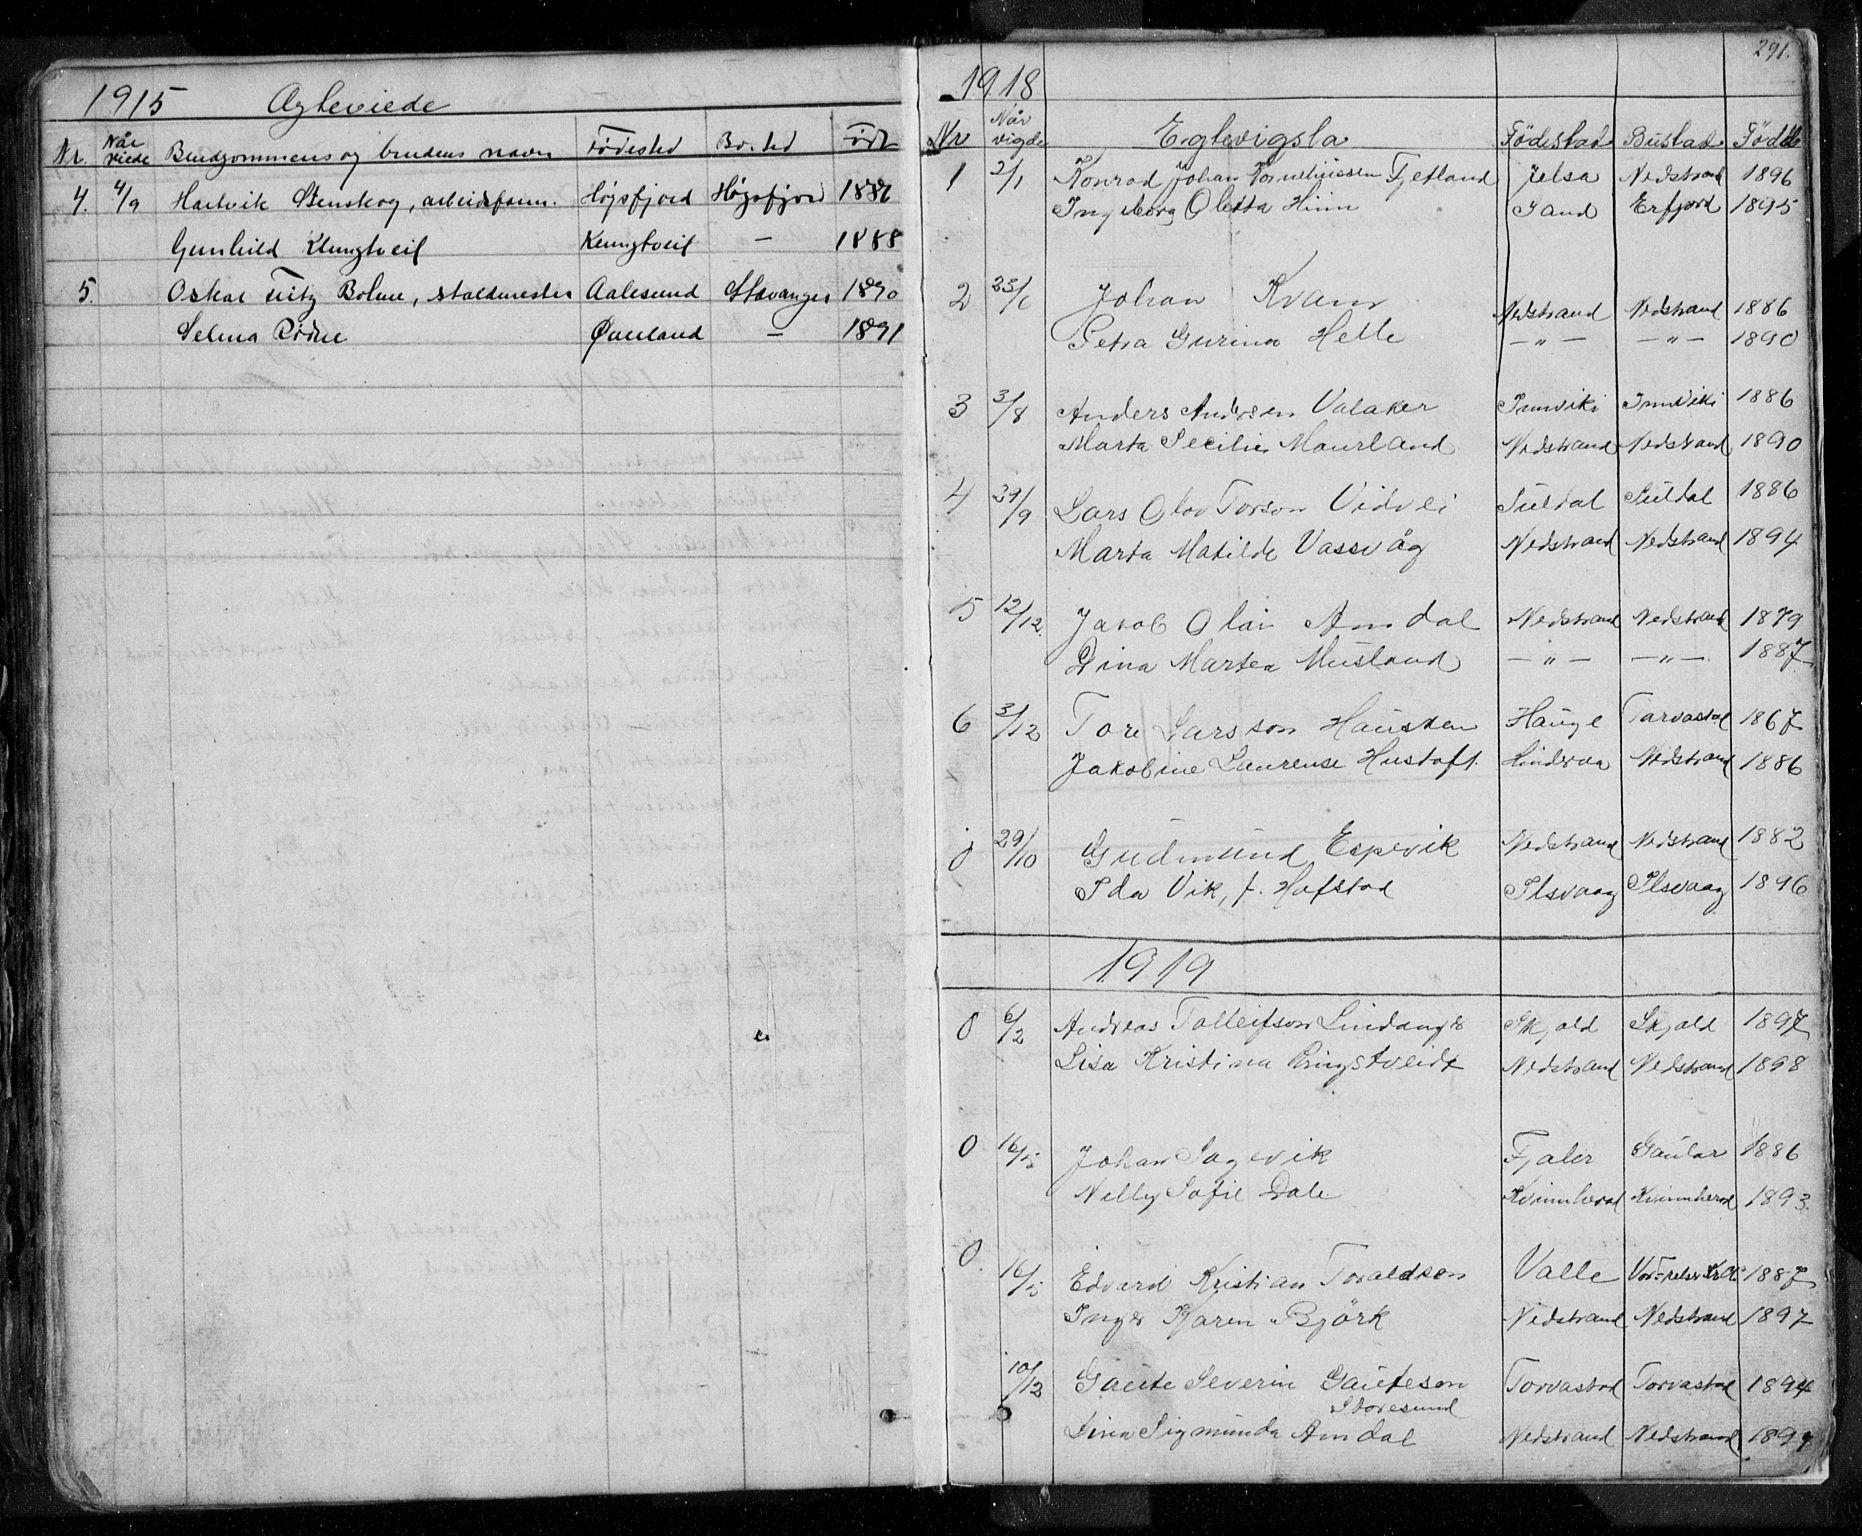 1915 Ægteviede
Nr. Når viede Brudgommens og brudens navn Fødested Bosted Født
4. 4/9 Hartvik Stenskog, arbeidsform. Høgsfjord Høgsfjord 1886
Gunhild Klungtveit Klungtveit — 1888
5. Oskar Fritz Bolme, staldmester Aalesund Stavanger 1890
Selma Rødne Ørland — 1891
291.
1918
Nr Når vigde Egtevigsla Födestad Bustad Födde
1 2/1 Konrad Johan Korneliussen Fjetland Jelsa Nedstrand 1896
Ingeborg Oletta Hiim Sand Erfjord 1895
2 23/6 Johan Kvam Nedstrand Nedstrand 1886
Petra Gurina Helle — " — — " — 1890
3 3/8 Anders Andersen Valaker Innviki Innviki 1886
Marta Secilie Maurland Nedstrand Nedstrand 1890
4 29/9 Lars Olav Torson Vidvei Suldal Suldal 1886
Marta Matilde Vassvåg Nedstrand Nedstrand 1894
5 12/12 Jakob Olai Amdal Nedstrand Nedstrand 1879
Dina Martea Musland — " — — " — 1887
6 3/12 Tore Larsson Hausken Hauge Torvastad 1867
Jakobine Laurense Hustoft Hinderaa Nedstrand 1886
0 29/10 Gudmund Espevik Nedstrand Nedstrand 1882
Ida Vik, f. Hofstad Ilsvaag Ilsvaag 1896
1919
0 6/2 Andreas Tolleifson Lindanger Skjold Skjold 1897
Lisa Kristina Ringstveidt Nedstrand Nedstrand 1898
0 16/5 Johan Sagevik Fjaler Gaular 1886
Nelly Sofie Dale Kvinnherad Kvinnherad 1893
0 16/5 Edvard Kristian Toraldson Valle 1887
Inger Karen Björk Nedstrand Nedstrand 1897
10/12 Gaute Severin Gauteson Torvastad Torvastad 1894
Storesund
Dina Sigmunda Amdal Nedstrand Nedstrand 1897